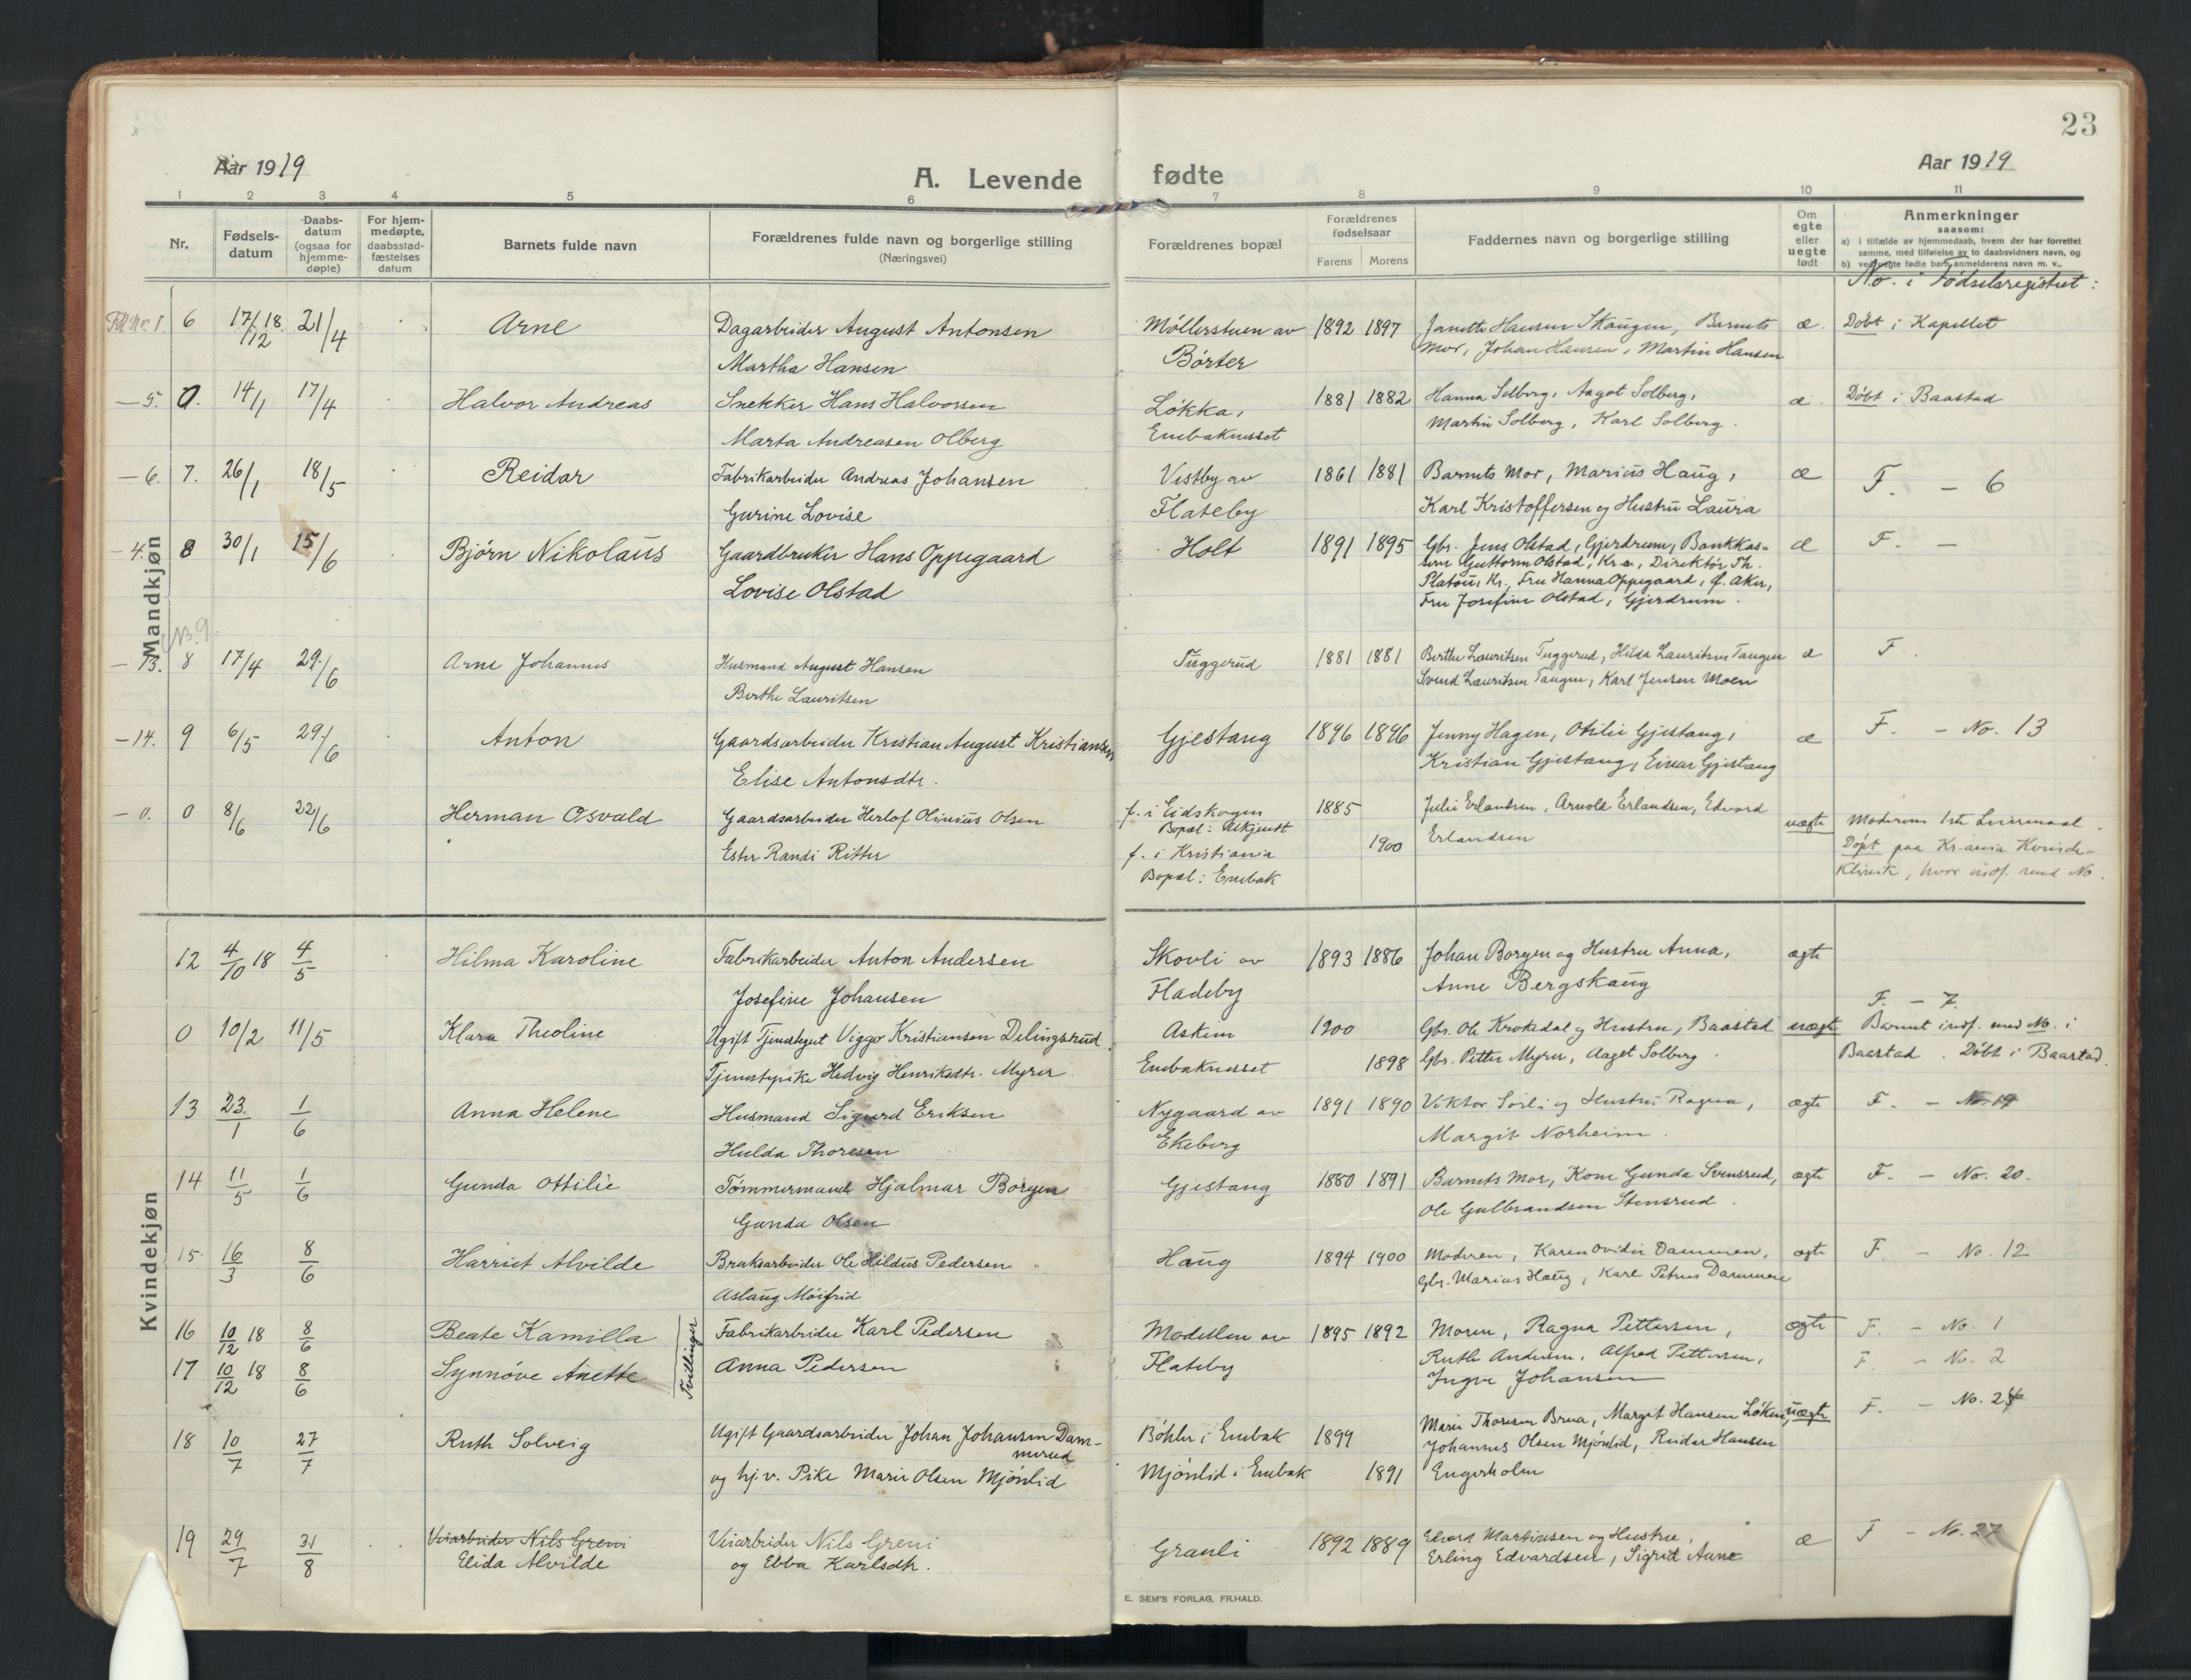 23
Aar 1919
A. Levende fødte
Aar 1919
1 2 3 4 5 6 7 8 9 10 11
Nr.
Fødsels-
datum
Daabs-
datum
(ogsaa for
hjemme-
døpte)
For hjem-
medøpte,
daabsstad-
fæstelses
datum
Barnets fulde navn
Forældrenes fulde navn og borgerlige stilling
(Næringsvei)
Forældrenes bopæl
Forældrenes
fødselsaar
Farens Morens
Faddernes navn og borgerlige stilling
Om
egte
eller
uegte
født
Anmerkninger
saasom:
a) i tilfælde av hjemmedaab, hvem der har forrettet
samme, med tilføielse av to daabsvidners navn, og
b) ved uegte fødte barn anmelderens navn m. v.
No. i Fødselsregistret:
Mandkjøn
6 17/12 18. 21/4 Arne Dagarbeider August Antonsen Møllerstuen av 1892 1897 Janette Hansen Skaugen, Barnets æ. Døbt i Kapellet
Martha Hansen Børter Mor, Johan Hansen, Martin Hansen
— 5. 0. 14/1 17/4 Halvor Andreas Snekker Hans Halvorsen Løkka, 1881 1882 Hanna Solberg, Aagot Solberg, æ. Døbt i Baastad
Marta Andreasen Olberg Enebaknesset Martin Solberg, Karl Solberg.
— 6. 7. 26/1 18/5 Reidar Fabrikarbeider Andreas Johansen Vestby av 1861 1881 Barnets Mor, Marius Haug, æ F. — 6
Gurine Lovise Flateby Karl Kristoffersen og Hustru Laura
— 4. 8 30/1 15/6 Bjørn Nikolaus Gaardbruker Hans Oppegaard Holt 1891 1895 Gbr. Jens Olstad, Gjerdrum, Bankkas- æ F. —
Lovise Olstad serer Guttorm Olstad, Kr.a, Direktør Th.
Platou, Kr., Fru Hanna Oppegaard, f. Aker,
Fru Josefine Olstad, Gjerdrum.
— 13. 8 17/4 29/6 Arne Johannes Husmand August Hansen Tuggerud 1881 1881 Berthe Lauritsen Tuggerud, Hilda Lauritsen Tangen æ F.
Berthe Lauritsen Svend Lauritsen Tangen, Karl Jensen Moen
— 14. 9 6/5 29/6 Anton Gaardsarbeider Kristian August Kristiansen Gjestang 1896 1896 Jenny Hagen, Otilie Gjestang, æ F. — No. 13
Elise Antonsdtr. Kristian Gjestang, Einar Gjestang
— 0. 0 8/6 22/6 Herman Osvald Gaardsarbeider Herlof Olinius Olsen f. i Eidskogen 1885 Julie Erlandsen, Arnold Erlandsen, Edvard uegte Moderens 1ste Leiermaal.
Bopæl: Ukjendt
Ester Randi Ritter f. i Kristiania 1900 Erlandsen Døpt paa Kr.ania Kvinde-
Bopæl: Enebak Klinik, hvor indf. med No.
Kvindekjøn
12 4/10 18 4/5 Hilma Karoline Fabrikarbeider Anton Andersen Skovli av 1893 1886 Johan Borgen og Hustru Anna, egte
Josefine Johansen Fladeby Anne Bergskaug F. — 7.
0 10/2 11/5 Klara Theoline Ugift Tjenstegut Viggo Kristiansen Delingsrud Askim 1900 Gbr. Ole Krokedal og Hustru, Baastad uegte Barnet indf. med No. i
Tjenestepike Hedvig Henriksdtr. Myrer Enebaknesset 1898 Gbr. Petter Myrer, Aagot Solberg. Baastad. Døbt i Baastad.
13 23/1 1/6 Anna Helene Husmand Sigurd Eriksen Nygaard av 1891 1890 Viktor Sørli og Hustru Ragna, egte F. — No. 19
Hulda Thoresen Ekeberg Margit Norheim.
14 11/5 1/6 Gunda Ottilie Tømmermand Hjalmar Borgen Gjestang 1880 1891 Barnets Mor, Kone Gunda Svensrud, egte F. — No. 20.
Gunda Olsen Ole Gulbrandsen Stensrud.
15 16/3 8/6 Harriet Alvilde Bruksarbeider Ole Hildus Pedersen Haug 1894 1900 Moderen, Karen Ovidie Dammen, egte F. — No. 12
Aslaug Møifrid Gbr. Marius Haug, Karl Petrus Dammen
16 10/12 18 8/6 Beate Kamilla Tvillinger Fabrikarbeider Karl Pedersen Modellen av 1895 1892 Moren, Ragna Pettersen, egte F. — No. 1
17 10/12 18 8/6 Synnøve Anette Anna Pedersen Flateby Ruth Andersen, Alfred Pettersen, F. — No. 2
Ingve Johansen
18 10/7 27/7 Ruth Solveig Ugift Gaardsarbeider Johan Johansen Dam- Bøhler i Enebak 1899 Marie Thoresen Brua, Margit Hansen Løken, uegte F. — No. 24
merud Johannes Olsen Mjønlid, Reidar Hansen
og hj.v. Pike Marie Olsen Mjønlid Mjønlid i Enebak 1891 Engerholm
19 29/7 31/8 Veiarbeider Nils Greni Veiarbeider Nils Greni Granli 1892 1889 Edvard Martinsen og Hustru, æ F — No. 27
Elida Alvilde og Ebba Karlsdtr. Erling Edvardsen, Sigrid Aune
E. SEM'S FORLAG, FR.HALD.